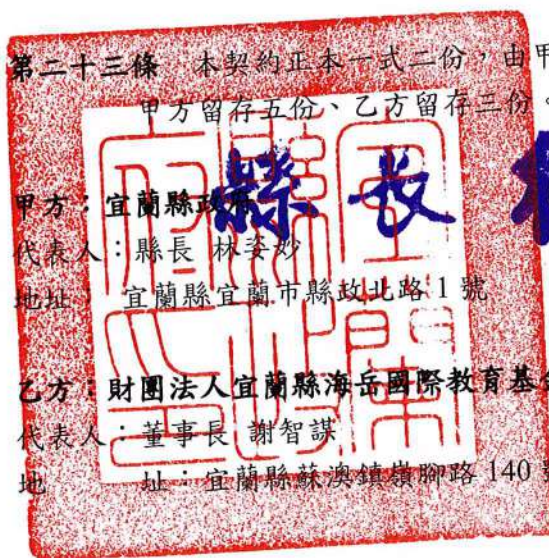 第二十三條　本契約正本一式二份，由甲
甲方留存五份、乙方留存三份。
縣長
甲方：宜蘭縣政府
代表人：縣長 林姿妙
地址： 宜蘭縣宜蘭市縣政北路 1 號
乙方：財團法人宜蘭縣海岳國際教育基
代表人：董事長 謝智謀
地　　址：宜蘭縣蘇澳鎮嶺腳路 140
宜蘭縣政府之印